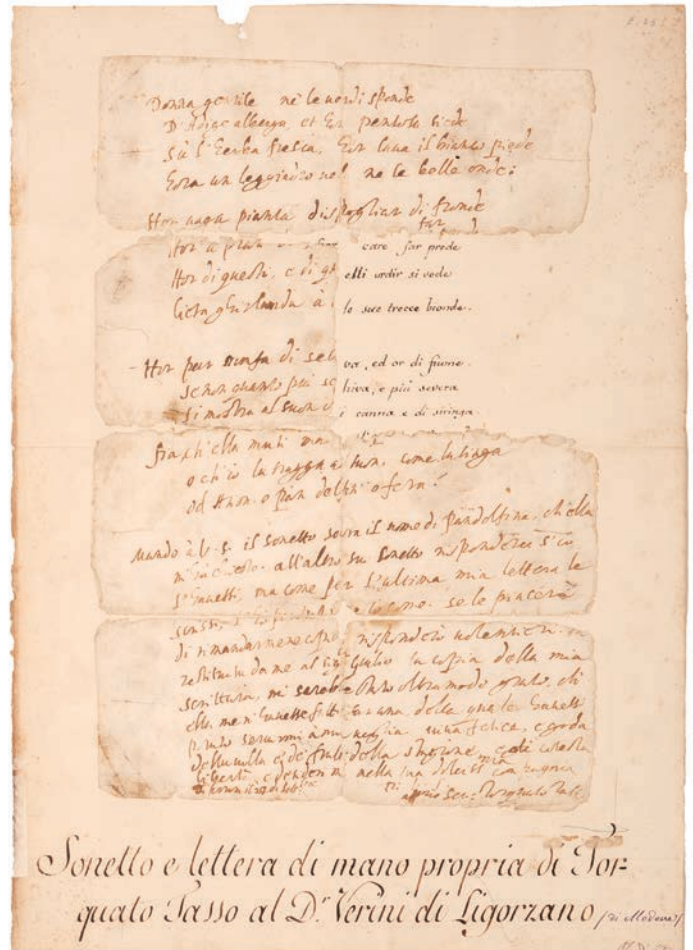 Donna gentile ne le verdi sponde
D'Adige alberga, et hor pensosa siede
Sù l'herba fresca, hor lava il bianco piede
hora un leggiadro vel ne le belle onde:
Hor vaga pianta dispogliar di fronde
far
Hor care far prede
Hor di questi, e di qu elli ordir si vede
lieta ghirlanda à le sue treccie bionde.
Hor par Ninfa di sel va, ed or di fiume
se non quanto più sc hiva, e più severa
si mostra al suon d i canna e di siringa.
fra ch'ella muti
o ch'io la tragga al suon, come lusinga
od Huom, o pian delfin o fera?
Mando à V.S. il sonetto sovra il nome di Pandolfina, ch'ella
m'ha chiesto. all'altro suo sonetto risponderei s'io
l'havessi, ma come per l'ultima mia lettera le
scrissi, se le piacerà
di rimandarmene copia, risponderò volentieri.
restituita da me al Sigr Giulio la copia della mia
scrittura, mi sarebbe oltra modo grato, ch'
ella me n'havesse fatta far una, della quale havessi
potuto servirmi à mia voglia. viva felice, e goda
della villa e de' frutti della stagione, e di cotesta
libertà nella sua dolciss. mia
Torquato Tasso
Sonetto e lettera di mano propria di Tor=
quato Tasso al Dr. Verini di Ligorzano (di Modena)